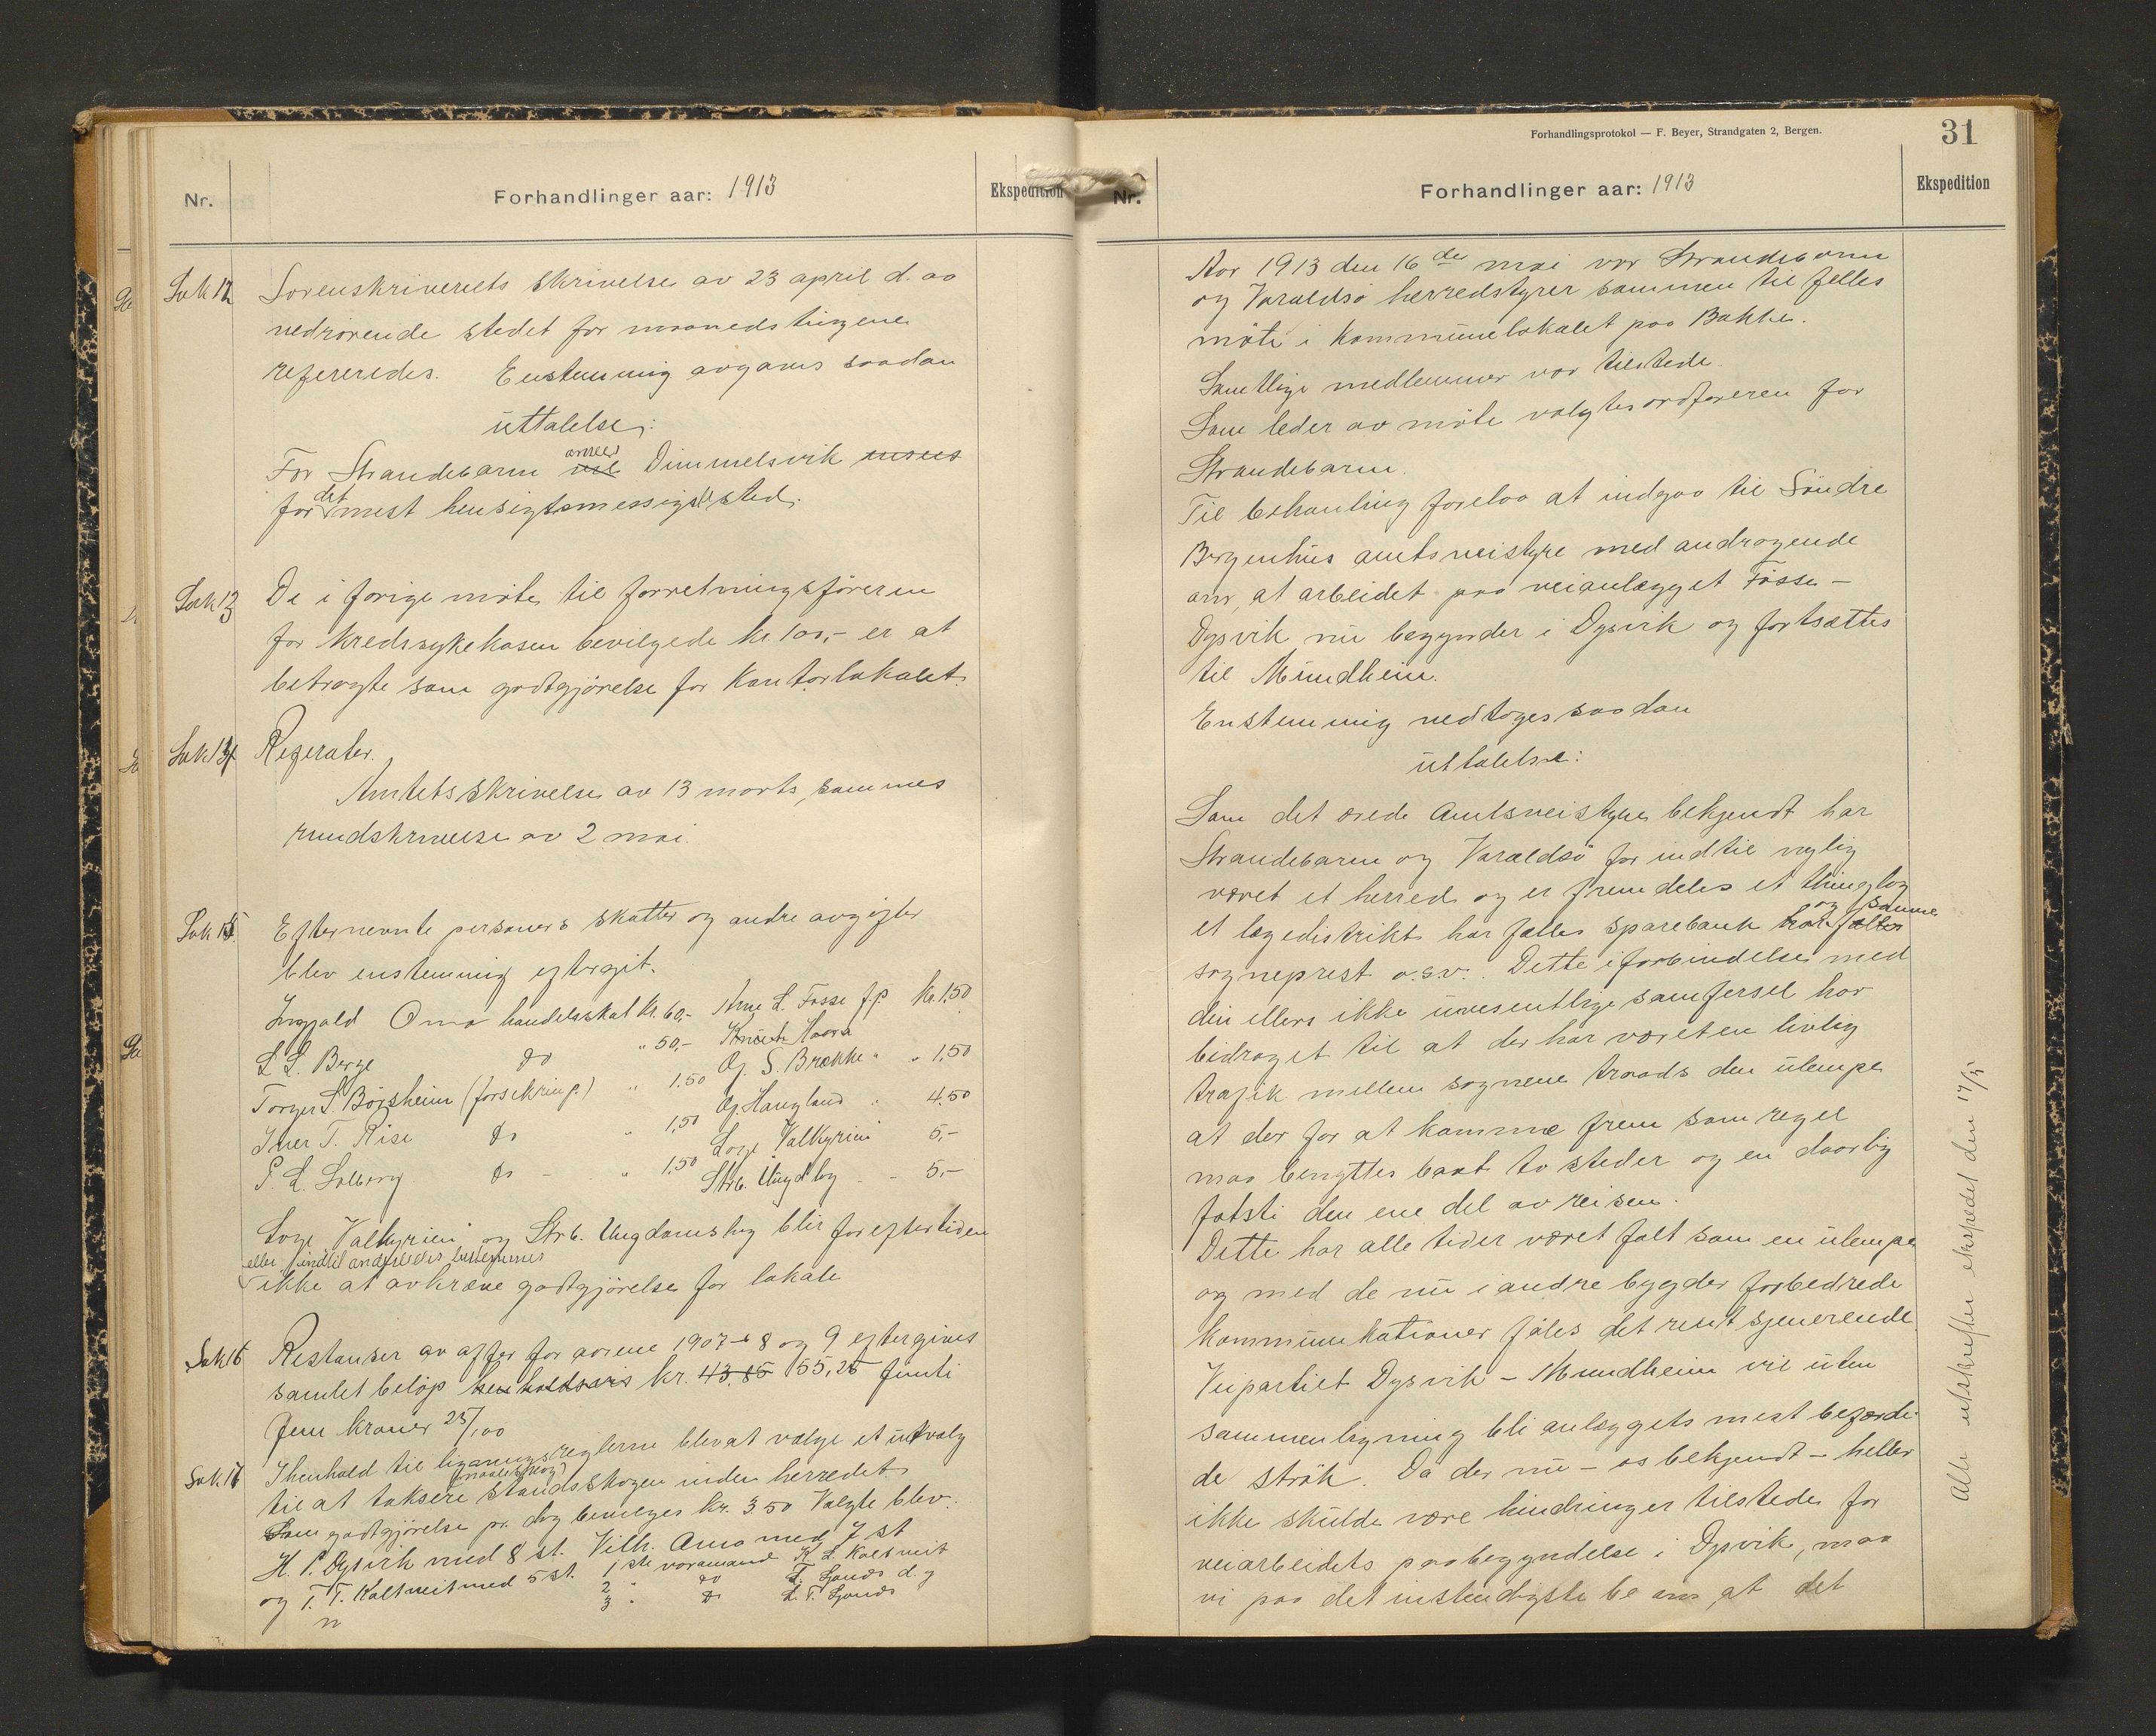 Nr.
Forhandlinger aar: 1913
Ekspedition
Sak 12
Sorenskriverets skrivelse av 23 april d. aa
vedrørende stedet for maanedstingene
refereredes. Enstemmig avgaves saadan
uttalelse:
For Strandebarm ansees Dimmelsvik ansees
for det mest hensigtsmessige sted.
Sak 13
De i forige møte til forretningsføreren
for kredssykekasen bevilgede kr. 100,- er at
betragte som godtgjørelse for Kontorlokalet.
Sak 14
Referater.
Amtets skrivelse av 13 marts, sammes
rundskrivelse av 2 mai.
Sak 15
Efternevnte personers skatter og andre avgifter
blev enstemmig eftergit.
Ingjald Oma handelsskat kr. 60,- Arne L. Fosse f.p kr. 1,50
L L. Berge do " 50,- Knut Haara
Torger S. Børsheim (forsikring.) " 1.50 Og. S. Brekke " " 1,50
Iver T. Rise do " 1,50 Og. Haugland " 4.50
P. L. Solberg do - " 1,50 Loge Valkyrien 5,-
Strb. Ungd.lag - - 5,-
Loge "Valkyrien" og Strb. Ungdomslag blir for eftertiden
eller indtil andreledes bestemmes
ikke at avkræve godtgjørelse for lokale
Sak 16
Restanser av after for aarene 1907 - 8 og 9 eftergives
samlet beløp henholdsvis kr. 43.85 55,25 femti
fem kroner 25/100
Sak. 17
I henhold til ligningsreglerne blev at vælge et utvalg
til at taksere standsskogen inden herredet
Som godtgjørelse pr. dag bevilges kr. 3.50 Valgte blev.
H. P. Dysvik med 8 st. Vilh. Omo med 7 st
og T. T. Kaltveit med 5 st. 1ste varamand K. L. Kaltveit
2 " do
3 " do
Forhandlingsprotokol — F. Beyer, Strandgaten 2, Bergen.
31
Nr.
Forhandlinger aar: 1913
Ekspedition
Aar 1913 den 16de mai var Strandebarm
og Varaldsø herredstyrer sammen til felles
møte i kommunelokalet paa Bakke.
Samtlige medlemmer var tilstede.
Som leder av møte valgtes ordføreren for
Strandebarm.
Til behanling forelaa at indgaa til Søndre
Bergenhus amtsveistyre med andragende
om, at arbeidet paa veianlægget Fosse -
Dysvik nu begynder i Dysvik og fortsættes
til Mundheim.
Enstemmig vedtoges saadan
uttalelse:
Som det ærede Amtsveistyre bekjendt har
Strandebarm og Varaldsø for indtil nylig
været et herred og er fremdeles et thinglag
et lægedistrikt har fælles sparebank og samme
sogneprest o.s.v. Dette i forbindelse med
den ellers ikke uvesentlige samfersel har
bidraget til at der har været en livlig
trafik mellem sognene traads den ulempe
at der for at komme frem som regel
maa benyttes baat to steder og en daarlig
fotsti den ene del av reisen.
Dette har alle tider været følt som en ulempe
og med de nu i andre bygder forbedrede
kommunikationer føles det rent sjenerende.
Veipartiet Dysvik - Mundheim vil uten
sammenligning bli anlæggets mest befærde-
de strøk. Da der nu - os bekjendt - heller
ikke skulde være hindringer tilstede for
veiarbeidets paabegyndelse i Dysvik, maa
vi paa det instendigste be om at det
Alle utskrifter ekspedert den 17/5